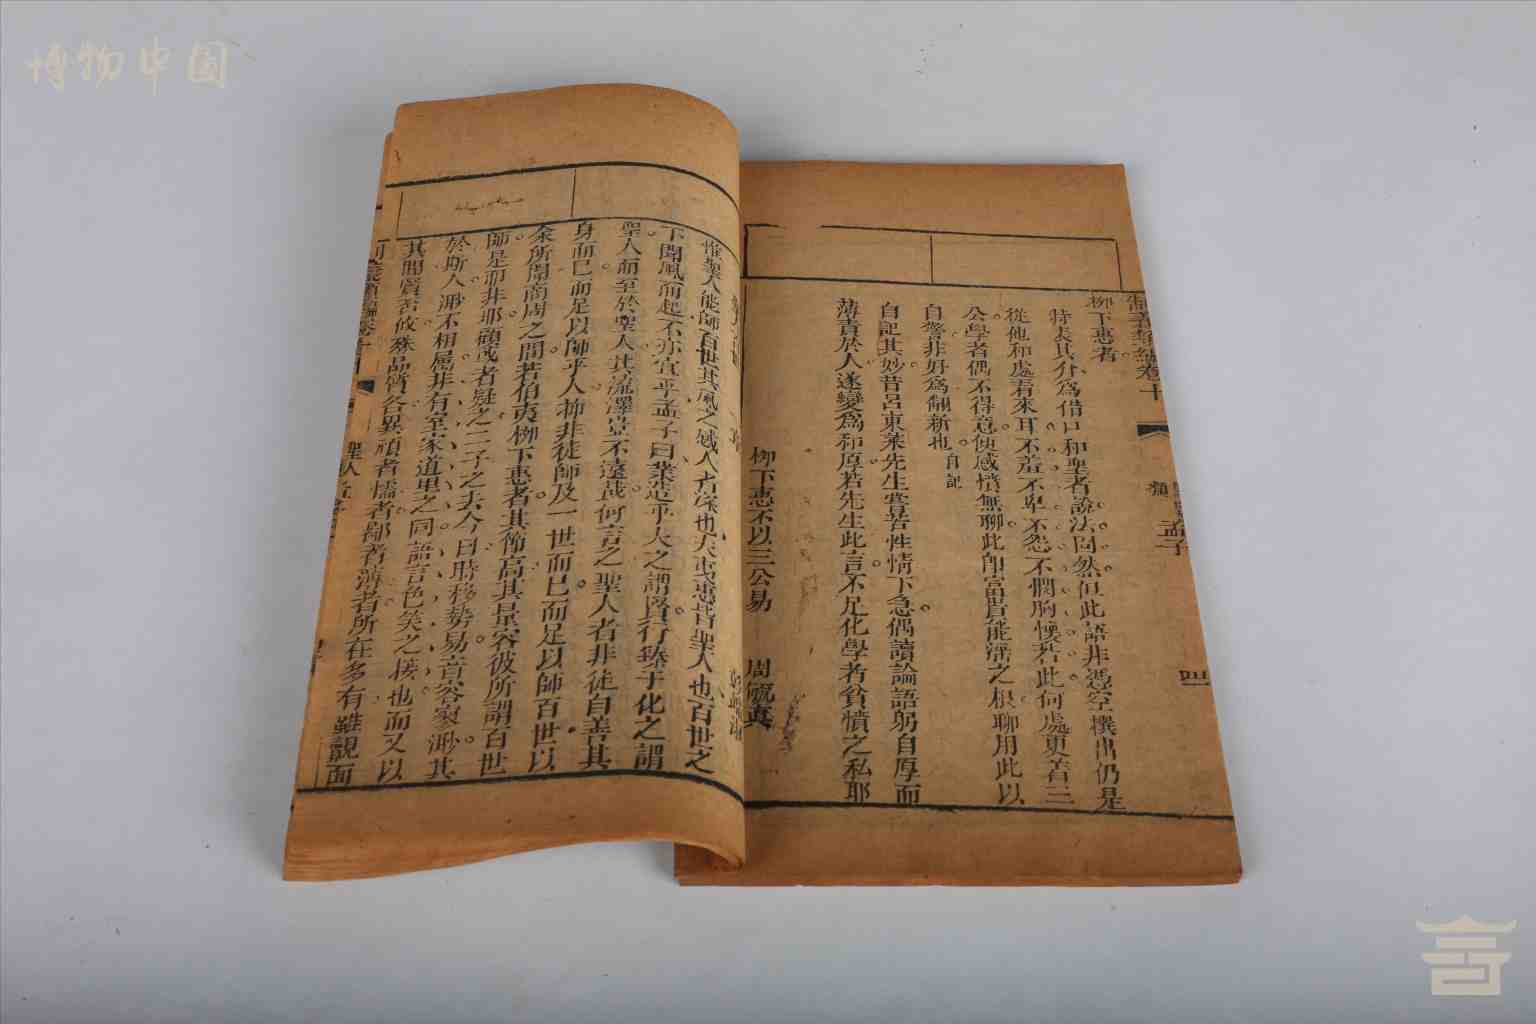 博物中国
柳下惠者
特表其介爲借口和聖者說法固然但此語非憑空撰出仍是
從他和處看來耳不羞不卑不怨不憫胸懷若此何處更著三
公學者偶不得意便感憤無聊此卽富貴能溺之根聊用此以
自警非好爲翻新也 自記
自記其妙昔呂東萊先生嘗苦性情下急偶讀論語躬自厚而
薄責於人遂變爲和厚若先生此言不足化學者貧憤之私耶
柳下惠不以三公易 周毓真
孟子
四
惟聖人能師百世其風之感人者深也夫夷惠皆聖人也百世之
下聞風而起不亦宜乎孟子曰業造乎大之謂賢行臻于化之謂
聖人而至於聖人其流澤豈不遠哉何言之聖人者非徒自善其
身而已而足以師乎人抑非徒師及一世而已而足以師百世以
余所聞商周之間若伯夷柳下惠者其節高其量容彼所謂百世
師是耶非耶顧或者疑之二子之去今日時移勢易音容寂渺其
於斯人渺不相屬非有室家道里之同語言色笑之接也而又以
其間賢否攸殊品質各異頑者懦者鄙者薄者所在多有雖覿面
聖人